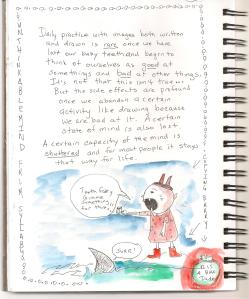 Daily practice with images both written
and drawn is rare once we have
lost our baby teeth and begin to
think of ourselves as good at
something and bad at other things.
It's not that this isn't true
But the side effects are profound
once we abandon a certain
activity like drawing because
we are bad at it. A certain
state of mind is also lost.
A certain capacity of the mind is
shuttered and for most people it stays
that way for life.
UNTHINKABLE MIND
SYLLABUS
LYNDA BARRY
Tooth Fairy
Gimme
something
SURE!